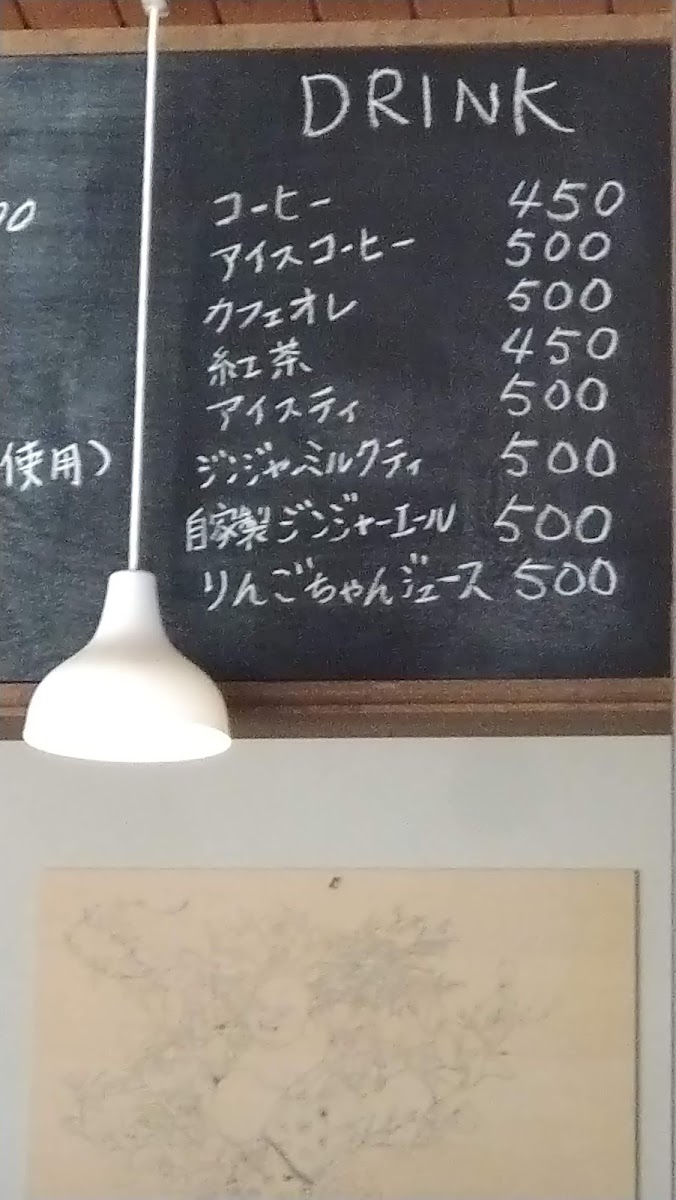 DRINK
コーヒー 450
アイスコーヒー 500
カフェオレ 500
紅茶 450
アイスティ 500
ジンジャーミルクティ 500
自家製ジンジャーエール 500
りんごちゃんジュース 500
00
使用)